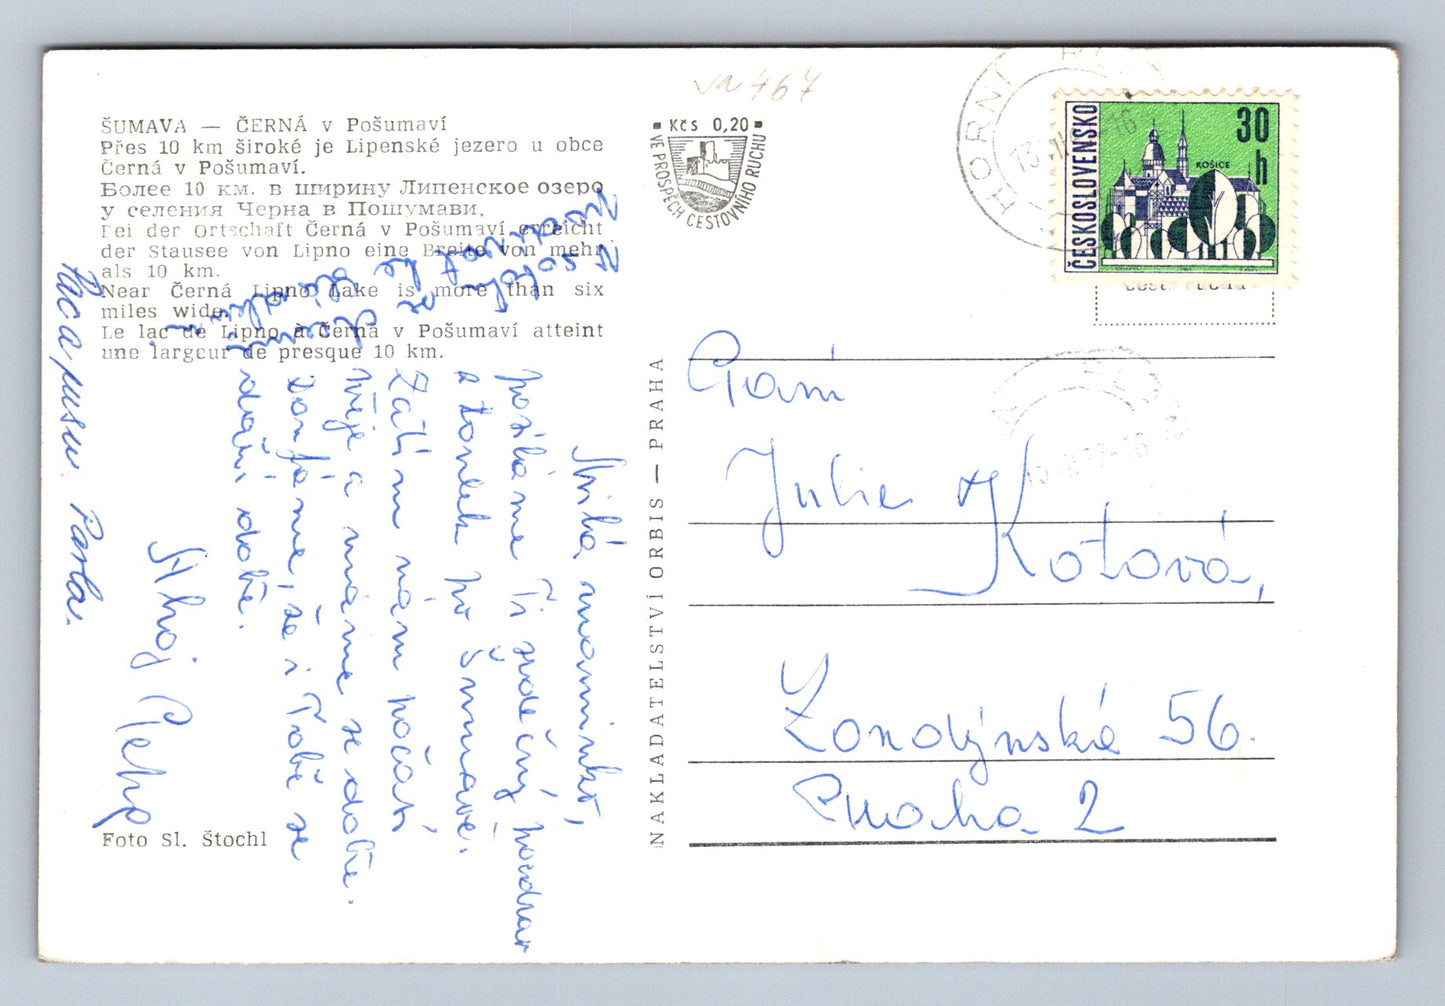 va 467
ŠUMAVA — ČERNÁ v Pošumaví
Přes 10 km široké je Lipenské jezero u obce
Černá v Pošumaví.
Более 10 км. в ширину Липенское озеро
у селения Черна в Пошумави.
Bei der Ortschaft Černá v Pošumaví erreicht
der Stausee von Lipno eine Breite von mehr
als 10 km.
Near Černá Lipno Lake is more than six
miles wide.
Le lac de Lipno à Černá v Pošumaví atteint
une largeur de presque 10 km.
Milá maminko,
posíláme Ti srdečný pozdrav
z toulek po Šumavě.
Zatím nám počasí
přeje a máme se dobře.
Doufáme, že i Tobě se
daří dobře.
Ahoj Pepa
Pac a pusu. Pavla.
Foto Sl. Štochl
Kčs 0,20
VE PROSPĚCH CESTOVNÍHO RUCHU
NAKLADATELSTVÍ ORBIS — PRAHA
HORNÍ
13
16
ČESKOSLOVENSKO
30
h
KOŠICE
Paní
Julie Kotová,
Londýnská 56.
Praha 2